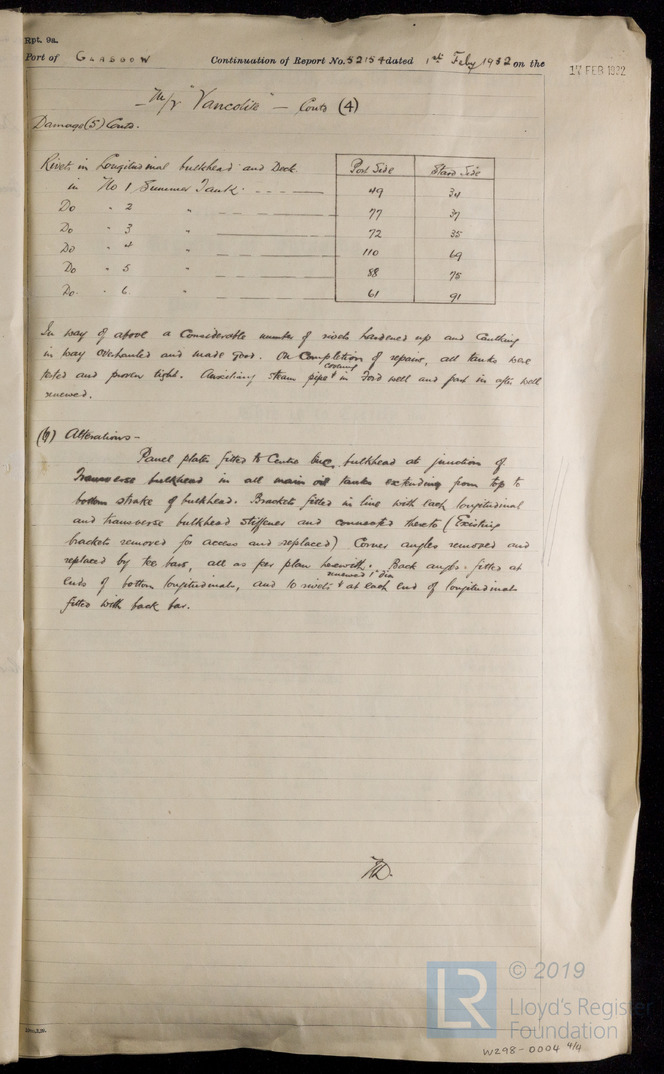 Rpt. 9a.
Port of GLASGOW Continuation of Report No. 52154 dated 1st Feby 1932 on the
17 FEB 1932
M/V "Vancolite" - Contd (4)
Damage (5) Contd.
Rivets in Longitudinal bulkhead and Deck Port Side Starbd Side
in No 1 Summer Tank 49 34
Do " 2 " 77 37
Do " 3 " 72 35
Do " 4 " 110 69
Do " 5 " 88 75
Do. " 6. " 61 91
In way of above a Considerable number of rivets hardened up and Caulking
in way overhauled and made good. On Completion of repairs, all tanks were
tested and proven tight. Auxiliary steam pipe & covering in Ford well and part in after well
renewed.
Alterations -
Panel plates fitted to Centre line bulkhead at junction of
Transverse bulkhead in all main oil tanks extending from top to
bottom strake of bulkhead. Brackets fitted in line with each longitudinal
and transverse bulkhead stiffener and connected thereto (Existing
brackets removed for access and replaced) Corner angles removed and
replaced by tee bars, all as per plan herewith. Back angles fitted at
ends of bottom longitudinals, and 10 rivets renewed 1" dia & at each end of longitudinals
fitted with back bar.
LR
© 2019
Lloyd's Register
Foundation
W298-0004 4/4